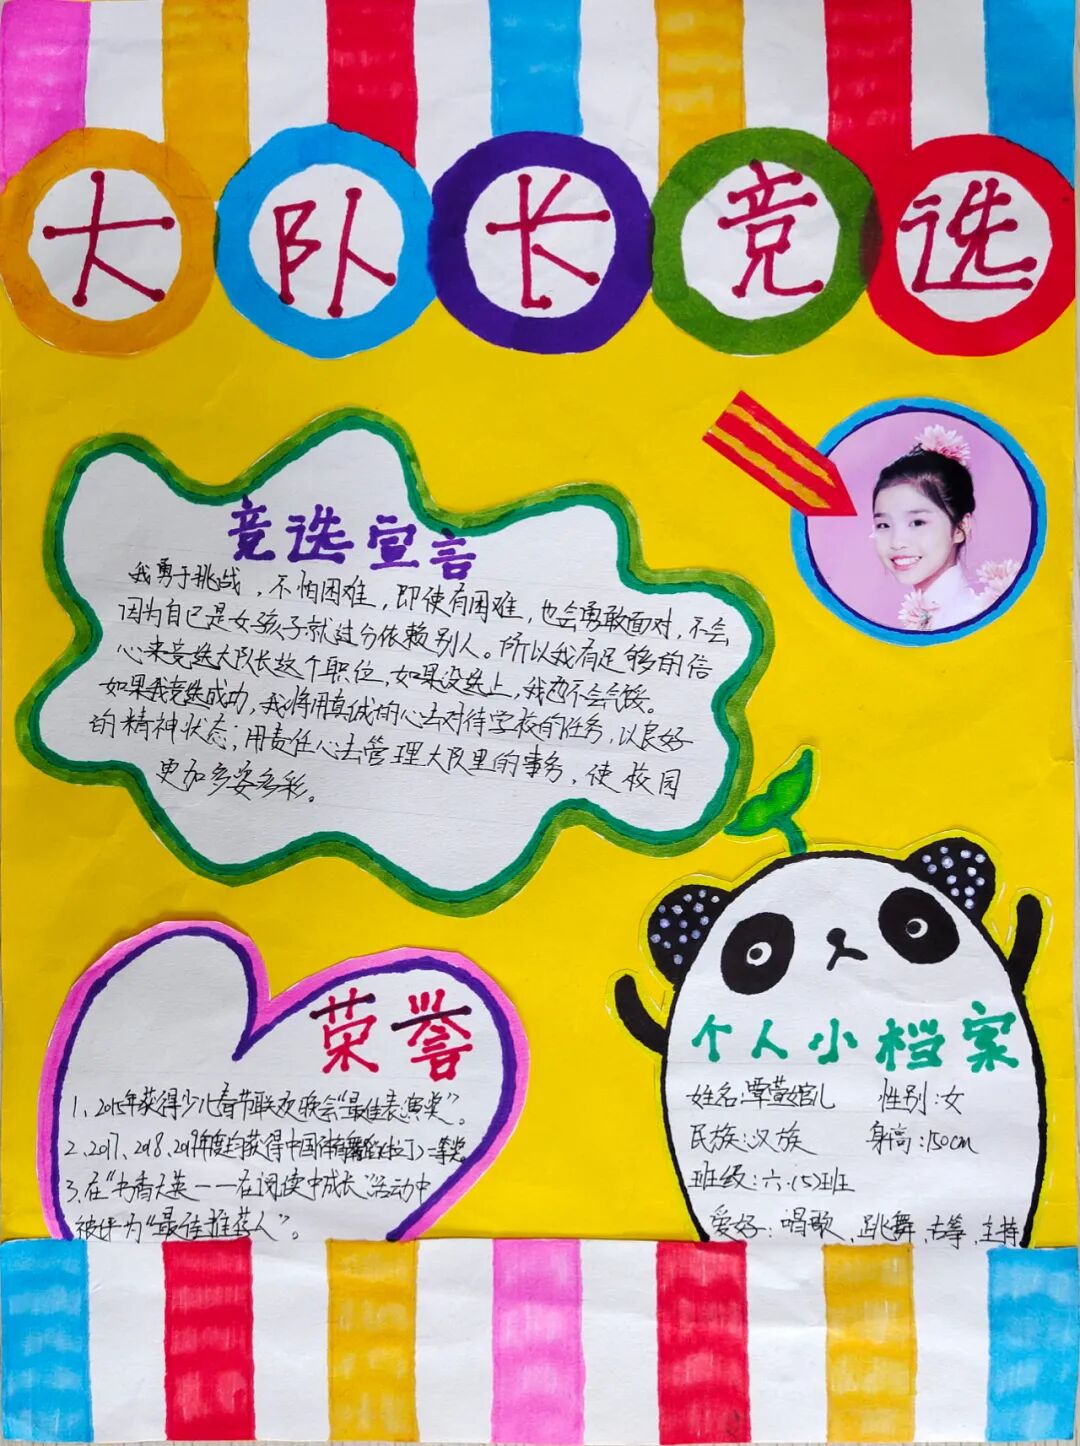 大队长竞选
竞选宣言
我勇于挑战，不怕困难，即使有困难，也会勇敢面对，不会
因为自己是女孩子就过分依赖别人。所以我有足够的信
心来竞选大队长这个职位，如果没选上，我也不会气馁。
如果我竞选成功，我将用真诚的心去对待学校的任务，以良好
的精神状态；用责任心去管理大队里的事务，使校园
更加多姿多彩。
荣誉
1、2015年获得少儿春节联欢晚会“最佳表演奖”。
2、2017、2018、2019年度均获得中国体育舞蹈(拉丁)二等奖
3、在“书香天英——在阅读中成长”活动中
被评为“最佳推荐人”。
个人小档案
姓名:覃萱婠儿 性别:女
民族:汉族 身高:150cm
班级:六.(5)班
爱好:唱歌、跳舞、古筝、主持